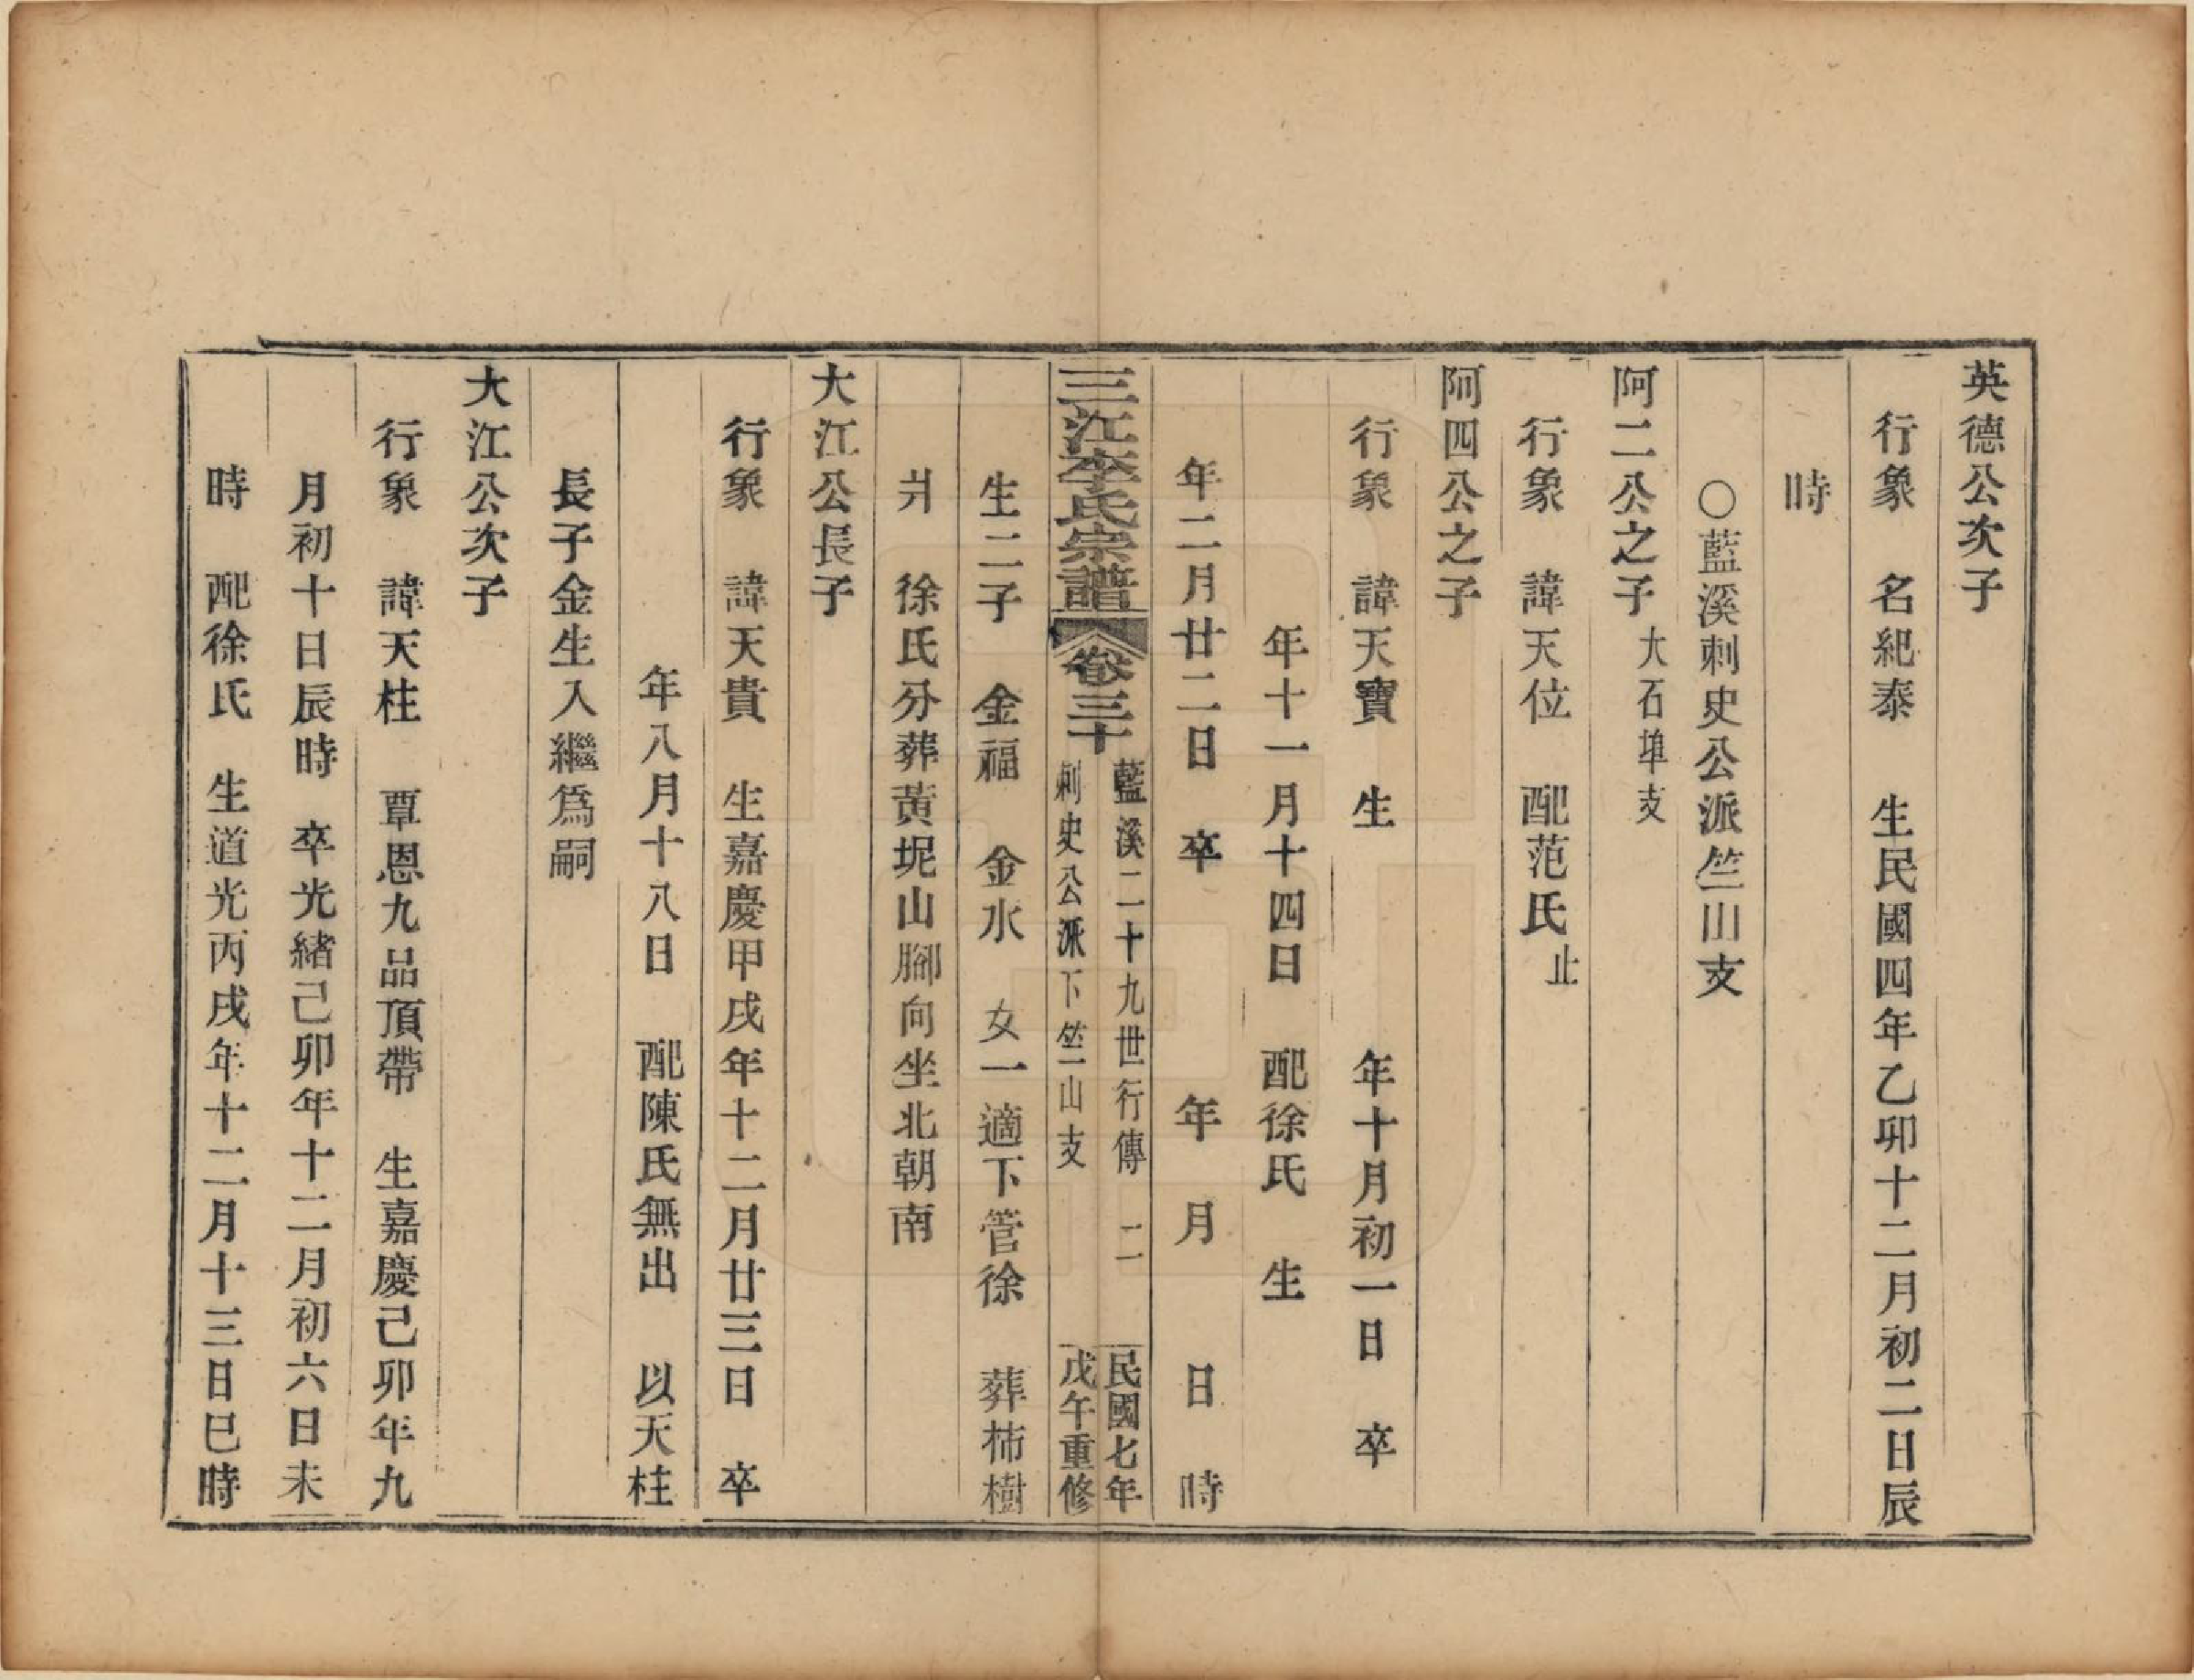 英德公次子
行象　名紀泰　生民國四年乙卯十二月初二日辰
時
○藍溪刺史公派竺山支
阿二公之子大石埠支
行象　諱天位　配范氏止
阿四公之子
行象　諱天寶　生　年十月初一日　卒
年十一月十四日　配徐氏　生
年二月廿二日　卒　年　月　日　時
三江李氏宗譜　卷三十
藍溪二十九世行傳　二
刺史公派下竺山支
民國七年
戊午重修
生二子　金福　金水　女一適下管徐　葬柿樹
爿　徐氏分葬黃坭山腳向坐北朝南
大江公長子
行象　諱天貴　生嘉慶甲戌年十二月廿三日　卒
年八月十八日　配陳氏無出　以天柱
長子金生入繼爲嗣
大江公次子
行象　諱天柱　覃恩九品頂帶　生嘉慶己卯年九
月初十日辰時　卒光緒己卯年十二月初六日未
時　配徐氏　生道光丙戌年十二月十三日巳時